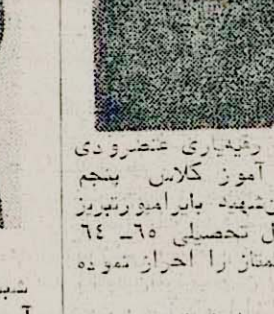 رقیه‌یاری عنصرودی
آموز کلاس پنجم
شهید بابر امپور تبریز
ل تحصیلی ٦٥ـ ٦٤
ممتاز را احراز نموده
شب